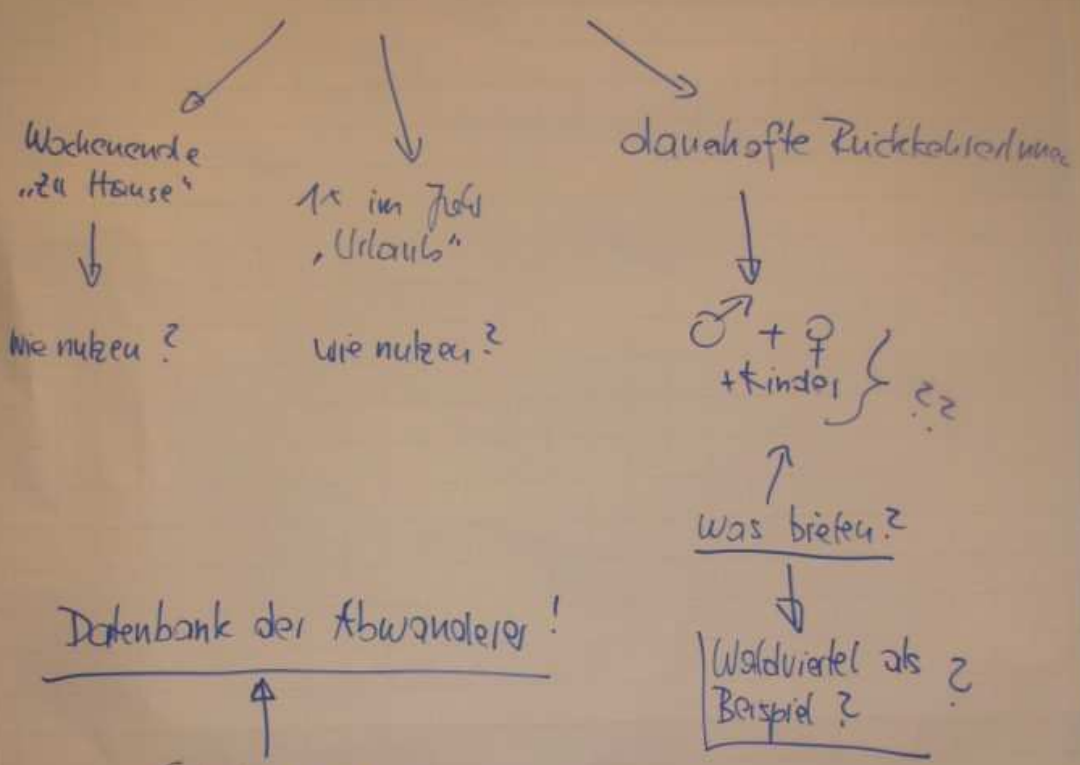 Wochenende
„zu Hause“
wie nutzen?
1x im Jahr
„Urlaub“
wie nutzen?
dauerhafte
♂ + ♀
+ Kinder } ??
was bieten?
Waldviertel als
Beispiel? ?
Datenbank der Abwanderer!